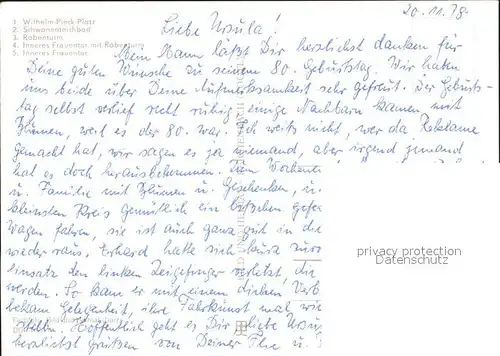 1. Wilhelm-Pieck-Platz
2. Schwanenteichbad
3. Rabenturm
4. Inneres Frauentor mit Rabenturm
5. Inneres Frauentor
20.11.78.
Liebe Ursula!
Mein Mann läßt Dir herzlichst danken für
Deine guten Wünsche zu seinem 80. Geburtstag. Wir haben
uns beide über Deine Aufmerksamkeit sehr gefreut. Der Geburts-
tag selbst verlief recht ruhig, einige Nachbarn kamen mit
Blumen, weil es der 80. war. Ich weiß nicht, wer da Reklame
gemacht hat, wir sagen es ja niemand, aber irgend jemand
hat es doch herausbekommen. Zum Wochen
u. Familie mit Blumen u. Geschenken, i
kleinsten Kreis gemütlich ein bißchen gefe
Wagen fahren, sie ist auch ganz gut in di
wieder raus. Erhard hatte sich
einsatz den linken Zeigefinger verletzt, di
werden. So kam er mit einem dicken Verb
bekam Gelegenheit, ihre Fahrkunst mal wie
stellen. Hoffentlich geht es Dir, liebe Ursu
herzlichst Grüßen von Deiner Ilse u.
privacy protection
Datenschutz